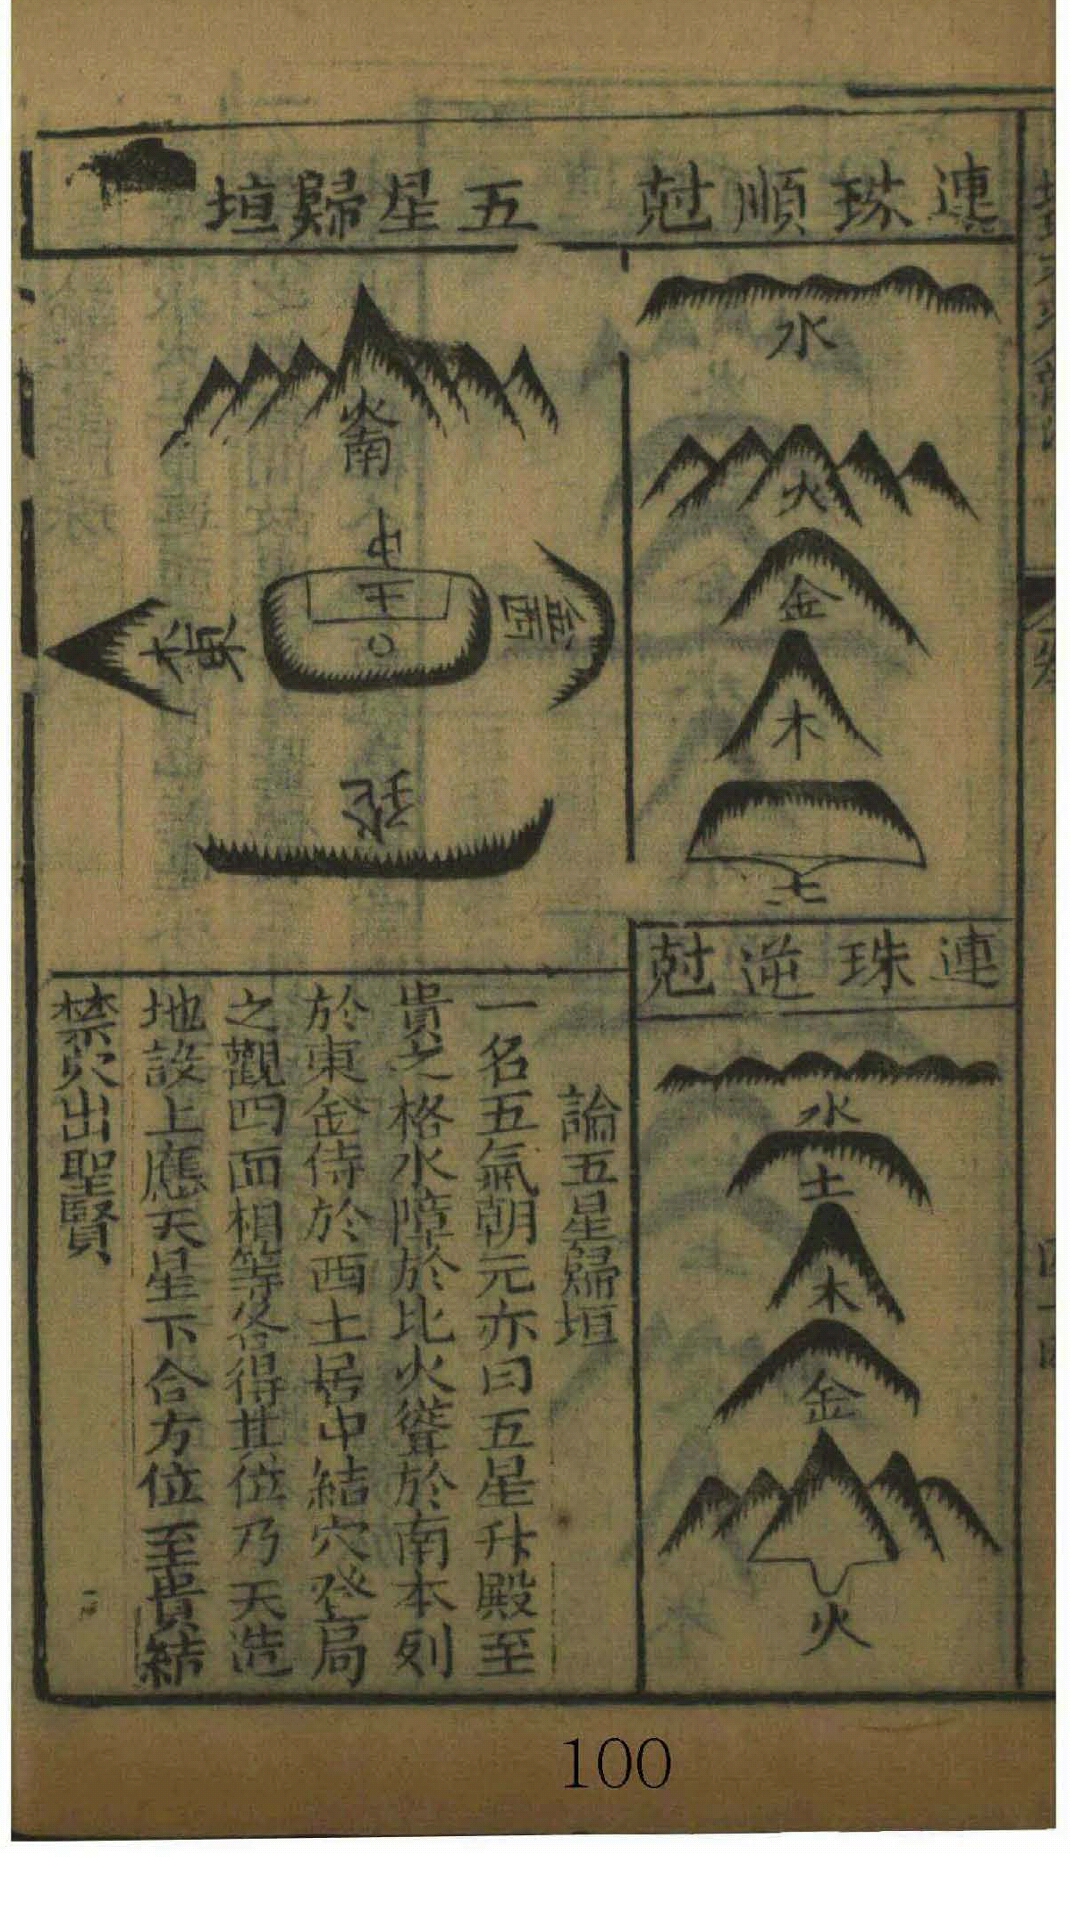 連珠順尅
水
火
金
木
土
連珠逆尅
水
土
木
金
火
五星歸垣
火南
中土
木東
金西
論五星歸垣
一名五氣朝元亦曰五星升殿至
貴之格水障於北火聳於南木列
於東金侍於西土居中結穴登局
之觀四面相等各得其位乃天造
地設上應天星下合方位至貴結
禁穴出聖賢
100